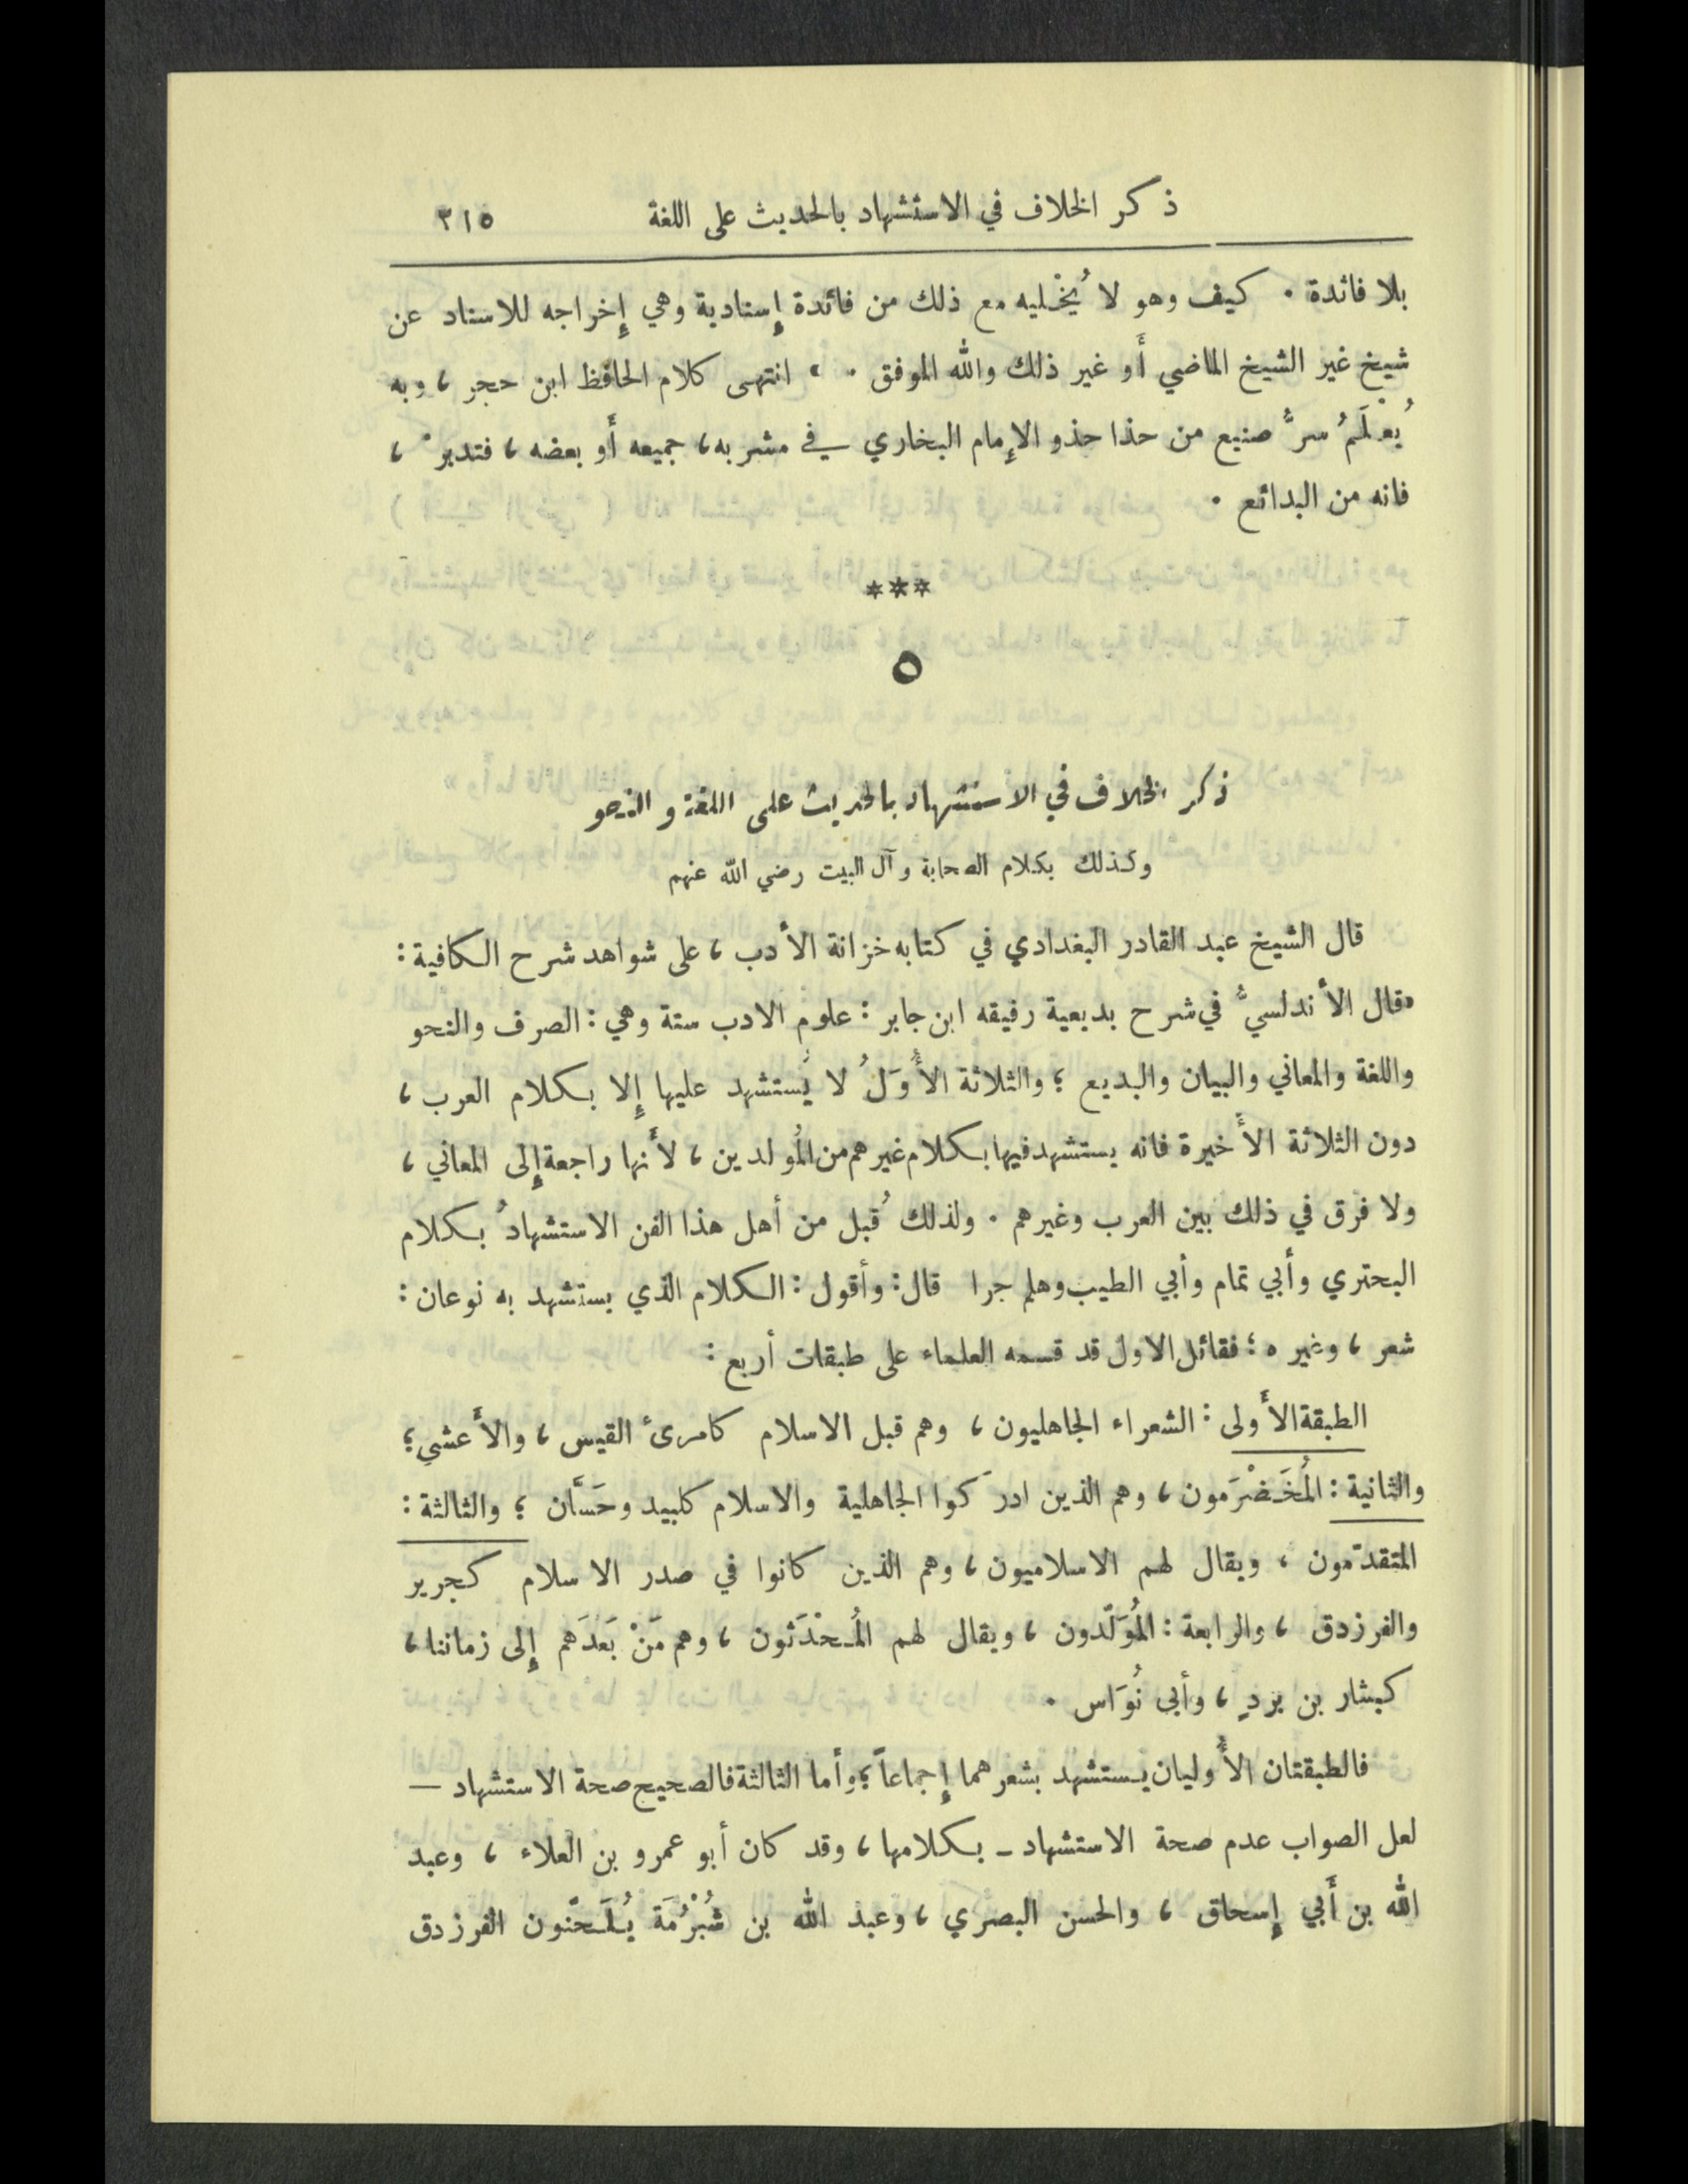 ذكر الخلاف في الاستشهاد بالحديث على اللغة ٣١٥
بلا فائدة . كيف وهو لا يُخْليه مع ذلك من فائدة إسنادية وهي إخراجه للاسناد عن
شيخ غير الشيخ الماضي أَو غير ذلك والله الموفق . » انتهى كلام الحافظ ابن حجر ، وبه
يُعْلَمُ سرُّ صنيع من حذا حذو الإمام البخاري في مشربه ، جميعه أَو بعضه ، فتدبرْ ،
فانه من البدائع .
***
٥
ذكر الخلاف في الاستشهاد بالحديث على اللغة والنحو
وكذلك بكلام الصحابة وآل البيت رضي الله عنهم
قال الشيخ عبد القادر البغدادي في كتابه خزانة الأدب ، على شواهد شرح الكافية :
«قال الأندلسيُّ في شرح بديعية رفيقه ابن جابر : علوم الادب ستة وهي : الصرف والنحو
واللغة والمعاني والبيان والبديع ؛ والثلاثة الأُوَلُ لا يُستشهد عليها إلا بكلام العرب ،
دون الثلاثة الأَخيرة فانه يستشهد فيها بكلام غيرهم من المُولدين ، لأَنها راجعة إلى المعاني ،
ولا فرق في ذلك بين العرب وغيرهم . ولذلك قُبل من أهل هذا الفن الاستشهادُ بكلام
البحتري وأبي تمام وأبي الطيب وهلم جرا قال : وأقول : الكلام الذي يستشهد به نوعان :
شعر ، وغيره ؛ فقائل الاول قد قسمه العلماء على طبقات أربع :
الطبقة الأَولى : الشعراء الجاهليون ، وهم قبل الاسلام كامرئ القيس ، والأَعشى ؛
والثانية : المُخَضْرَمون ، وهم الذين ادرَكوا الجاهلية والاسلام كلبيد وحَسَّان ؛ والثالثة :
المتقدّمون ، ويقال لهم الاسلاميون ، وهم الذين كانوا في صدر الاسلام كجرير
والفرزدق ، والرابعة : المُوَلَّدون ، ويقال لهم المُحْدَثون ، وهم مَنْ بَعْدَهم إلى زماننا ،
كبشار بن بردٍ ، وأبي نُوَاس .
فالطبقتان الأُوليان يستشهد بشعرهما إجماعاً ؛ وأما الثالثة فالصحيح صحة الاستشهاد —
لعل الصواب عدم صحة الاستشهاد - بكلامها ، وقد كان أبو عمرو بن العلاء ، وعبد
الله بن أَبي إسحاق ، والحسن البصري ، وعبد الله بن شُبْرُمَة يُلَحّنون الفرزدق